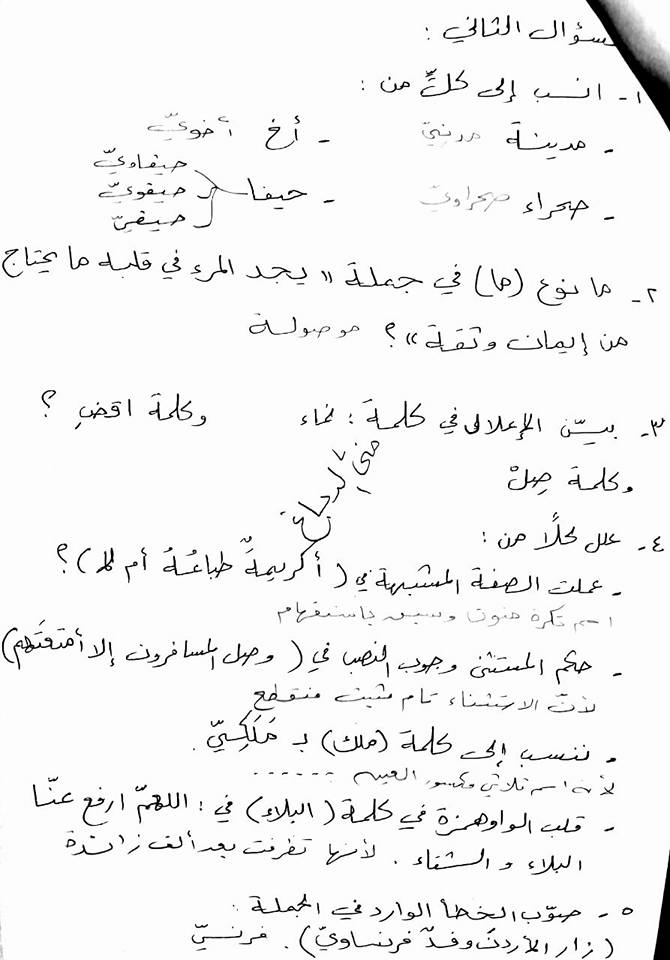 سؤال الثاني :
١- انسب إلى كلٍّ من :
- مدينة مدنيّ - أخ أخويّ
- صحراء صحراويّ - حيفا حيفاويّ حيفويّ حيفيّ
٢- ما نوع (ما) في جملة " يجد المرء في قلبه ما يحتاج
من إيمان وثقة " ؟ موصولة
٣- بيّن الإعلال في كلمة : نماء وكلمة اقضِ ؟
وكلمة صِلْ
٤- علل كلًّا من :
- عملت الصفة المشبهة في ( أكريمةٌ طباعُهُ أم لا ) ؟
اسم نكرة منون وسبق باستفهام
- حكم المستثنى وجوب النصب في ( وصل المسافرون إلا أمتعتَهم )
لأنّ الاستثناء تام مثبت منقطع
- ننسب إلى كلمة (ملك) بـ مَلَكيّ .
لأنه اسم ثلاثي مكسور العين ......
- قلب الواو همزة في كلمة ( البلاء ) في : اللهمّ ارفع عنّا
البلاء والشقاء . لأنها تطرفت بعد ألف زائدة
٥- صوّب الخطأ الوارد في الجملة :
( زار الأردن وفدٌ فرنساويّ ) . فرنسيّ